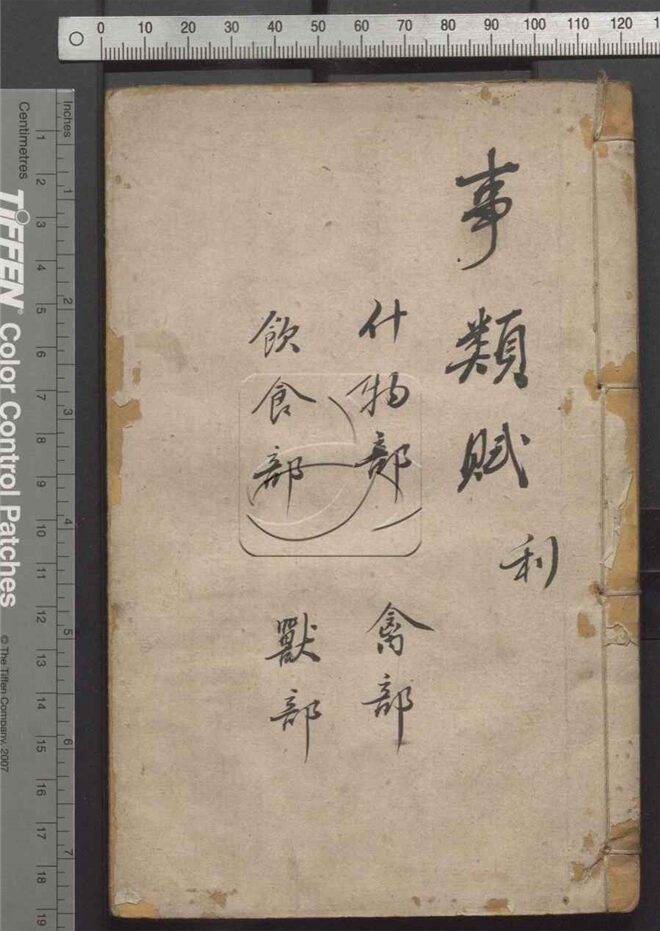 事類賦
利
什物部 禽部
飲食部 獸部
0 10 20 30 40 50 60 70 80 90 100 110 120
Inches
Centimetres
1 2 3 4 5 6 7
1 2 3 4 5 6 7 8 9 10 11 12 13 14 15 16 17 18 19
TIFFEN® Color Control Patches
© The Tiffen Company, 2007